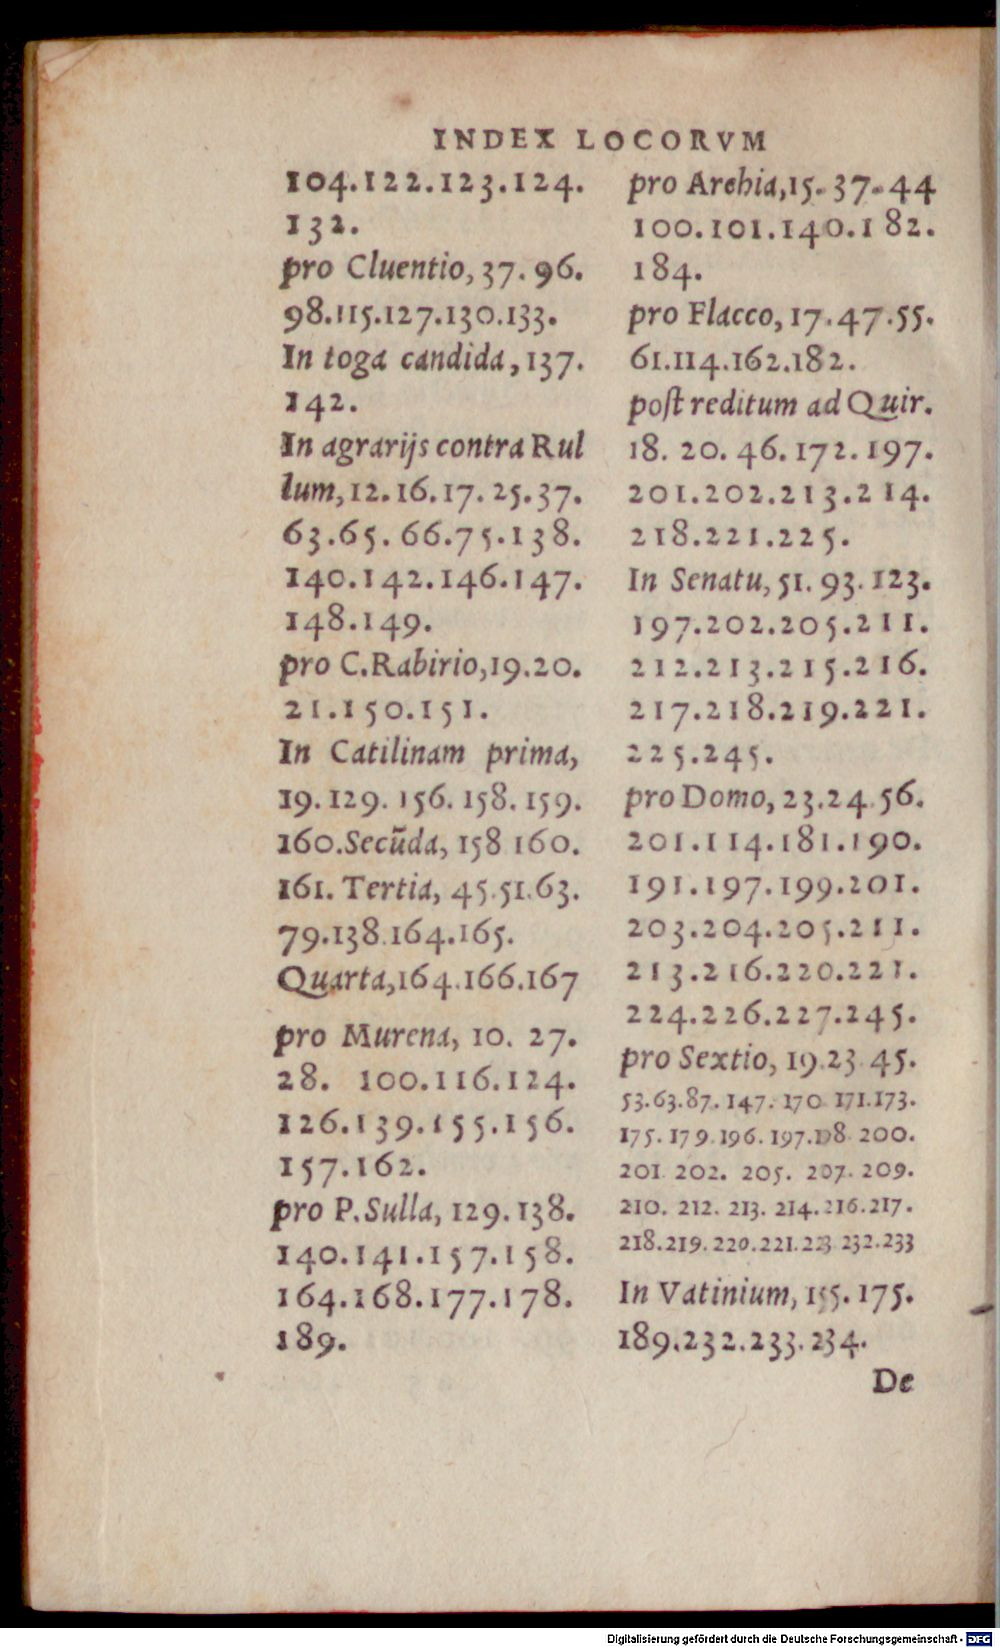 INDEX LOCORVM
104.122.123.124.
132.
pro Cluentio, 37. 96.
98.115.127.130.133.
In toga candida, 137.
142.
In agrarijs contra Rul
lum, 12. 16. 17. 25. 37.
63.65. 66.75.138.
140.142.146.147.
148.149.
pro C.Rabirio,19.20.
21.150.151.
In Catilinam prima,
19. 129. 156. 158. 159.
160.Secũda, 158 160.
161. Tertia, 45.51.63.
79.138.164.165.
Quarta,164.166.167
pro Murena, 10. 27.
28. 100.116.124.
126.139.155.156.
157.162.
pro P.Sulla, 129.138.
140.141.157.158.
164.168.177.178.
189.
pro Archia,15. 37. 44
100.101.140.182.
184.
pro Flacco, 17.47.55.
61.114.162.182.
poſt reditum ad Quir.
18. 20. 46. 172. 197.
201.202.213.214.
218.221.225.
In Senatu, 51. 93. 123.
197.202.205.211.
212.213.215.216.
217.218.219.221.
225.245.
pro Domo, 23.24.56.
201.114.181.190.
191.197.199.201.
203.204.205.211.
213.216.220.221.
224.226.227.245.
pro Sextio, 19.23.45.
53.63.87. 147. 170. 171.173.
175. 179. 196. 197.198. 200.
201. 202. 205. 207. 209.
210. 212. 213. 214.216.217.
218.219.220.221.223 232.233
In Vatinium, 155. 175.
189.232.233.234.
De
Digitalisierung gefördert durch die Deutsche Forschungsgemeinschaft - DFG